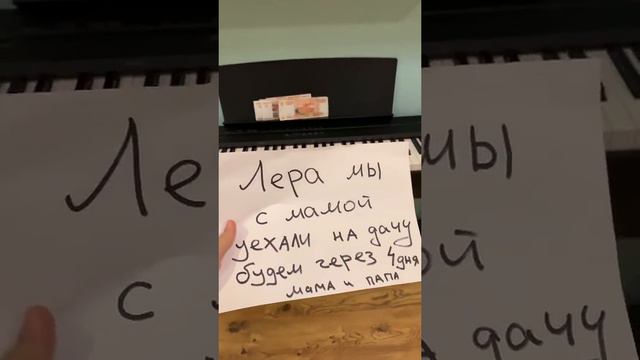 Лера мы
с мамой
уехали на дачу
будем через 4 дня
мама и папа